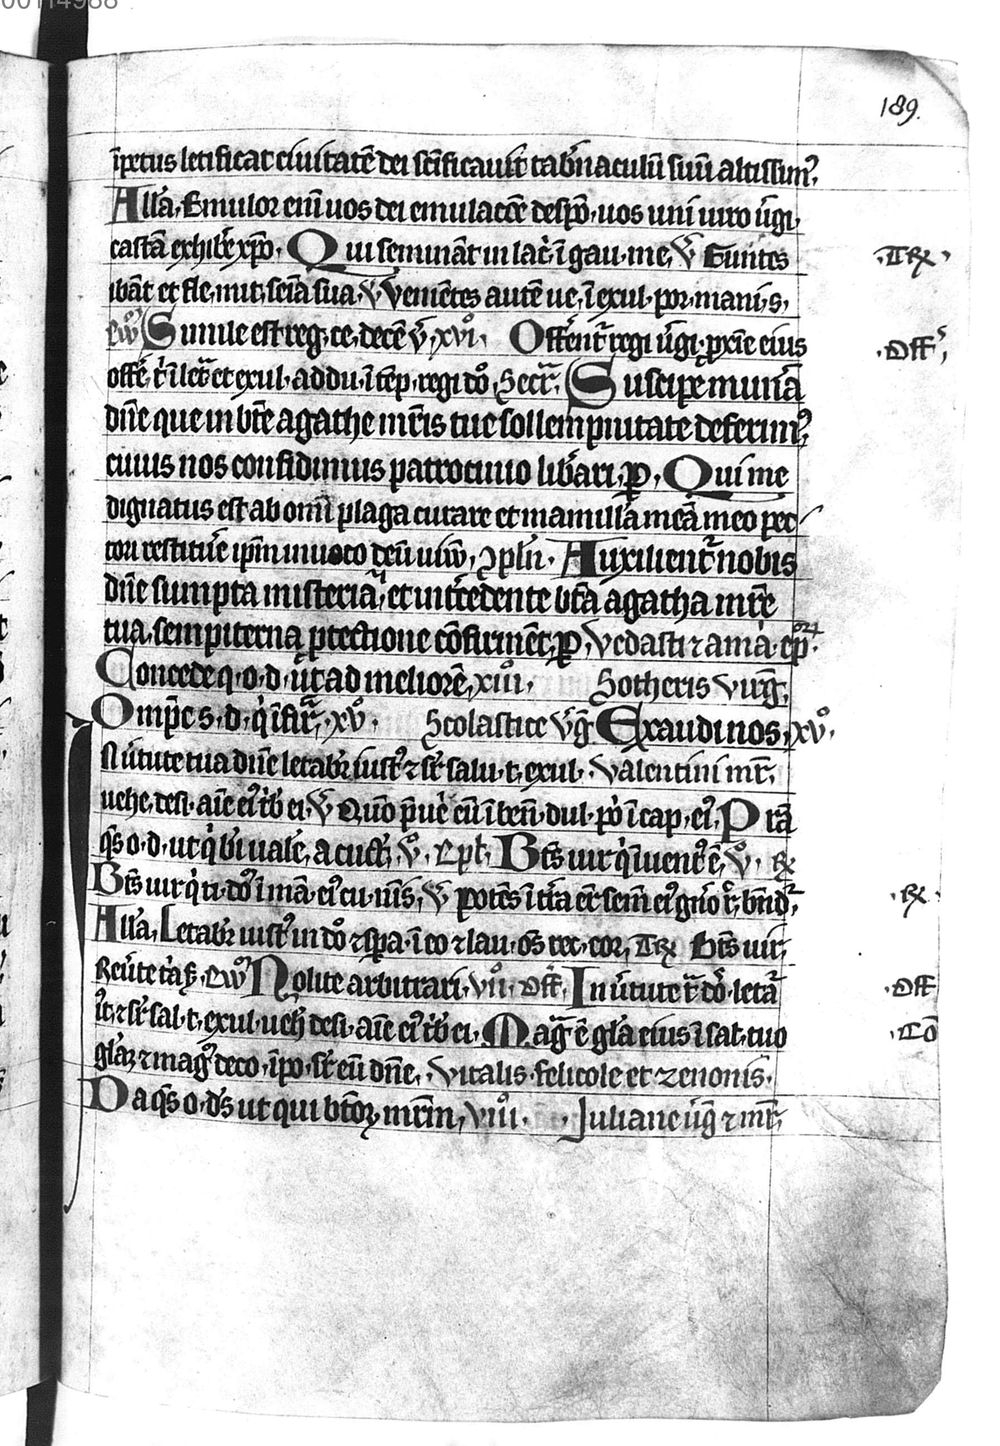 00114988
189.
īpetus letificat ciuitatē dei scīficauit tab̄naculū suū altissim⁹,
All'a, Emulor eni uos dei emulacōe despō. uos uni uiro ūgi.
castā exhib'e xpō. Qui semināt in lac̄. ī gau. me, V̄ Eūntes .TR.
ibāt et fle, mit, seīa sua, V Venietes autē ue, ī exul. por. manī s,
ew̄ Simile est reg, ce, decē v̄, xvi. Offēnt̄ regi ūgi, p̄xie eius .Off',
offe, t̄ ī let̄ et exul. addu. ī tēp. regi dō, Secr̄. Suscipe munīa
dn̄e que in bt̄e agathe mr̄is tue sollempnitate deferim⁹,
cuius nos confidimus patrocinio lib̄ari, p. Qui me
dignatus est ab omī plaga curare et mamillā meā meo pec
tori restituē ip̄m inuoco deū uiuū, Ꝯpl'n. Auxilient̄ nobis
dn̄e sumpta misteria, et int̄cedente bt̄a agatha mr̄e
tua, sempiterna p̄tectione cōfirmēt, P, Vedasti ⁊ amā. ep̄.
Concede q. o. d. ut ad meliorē, xiii. Sotheris virḡ,
Omp̄c s. d. q' īfir̄, xv. Scolastice v̄g Exaudi nos, xv.
In ūtute tua dn̄e letab̄r iust⁹ ⁊ sr̄ salu. t, exul. Valentini mr̄,
uehe, desi. aīe ei⁹ tb' ei, V̄ Quō p̄uē' eū ī ben̄. dul. pō' ī cap, ei⁹, Prā
qs̄ o. d. ut q' b'i uale, a cuct̄, v. Epl'. Bt̄s uir q' īuent⁹ ē, v. R
Bt̄s uir q' ti. dō ī mā. ei⁹ cu. nīs, V̄ Potēs ī tr̄a er̄. semē ei⁹ gn̄o r̄, bn̄d̄, .R.
All'a, Letab̄r iust⁹ in dō ⁊ spa. ī eo ⁊ lau. os rec. cor, TR Bt̄s uir,
Nolite arbitrari. vii. Off̄. In ūtute t̄ dō. letā .Off
it, ⁊ sr̄ sal. t, exul. ueh̄ desi. aīe ei⁹ tb' ei, Maḡ ē gl'a eius ī sal. tuo .Cō
gl'az ⁊ maḡ deco, īpo. sr̄ eū dn̄e, Vitalis felicole et zenonis.
Da qs̄ o. ds ut qui bt̄orꝝ mr̄m, viii. Juliane ūg ⁊ mr̄,